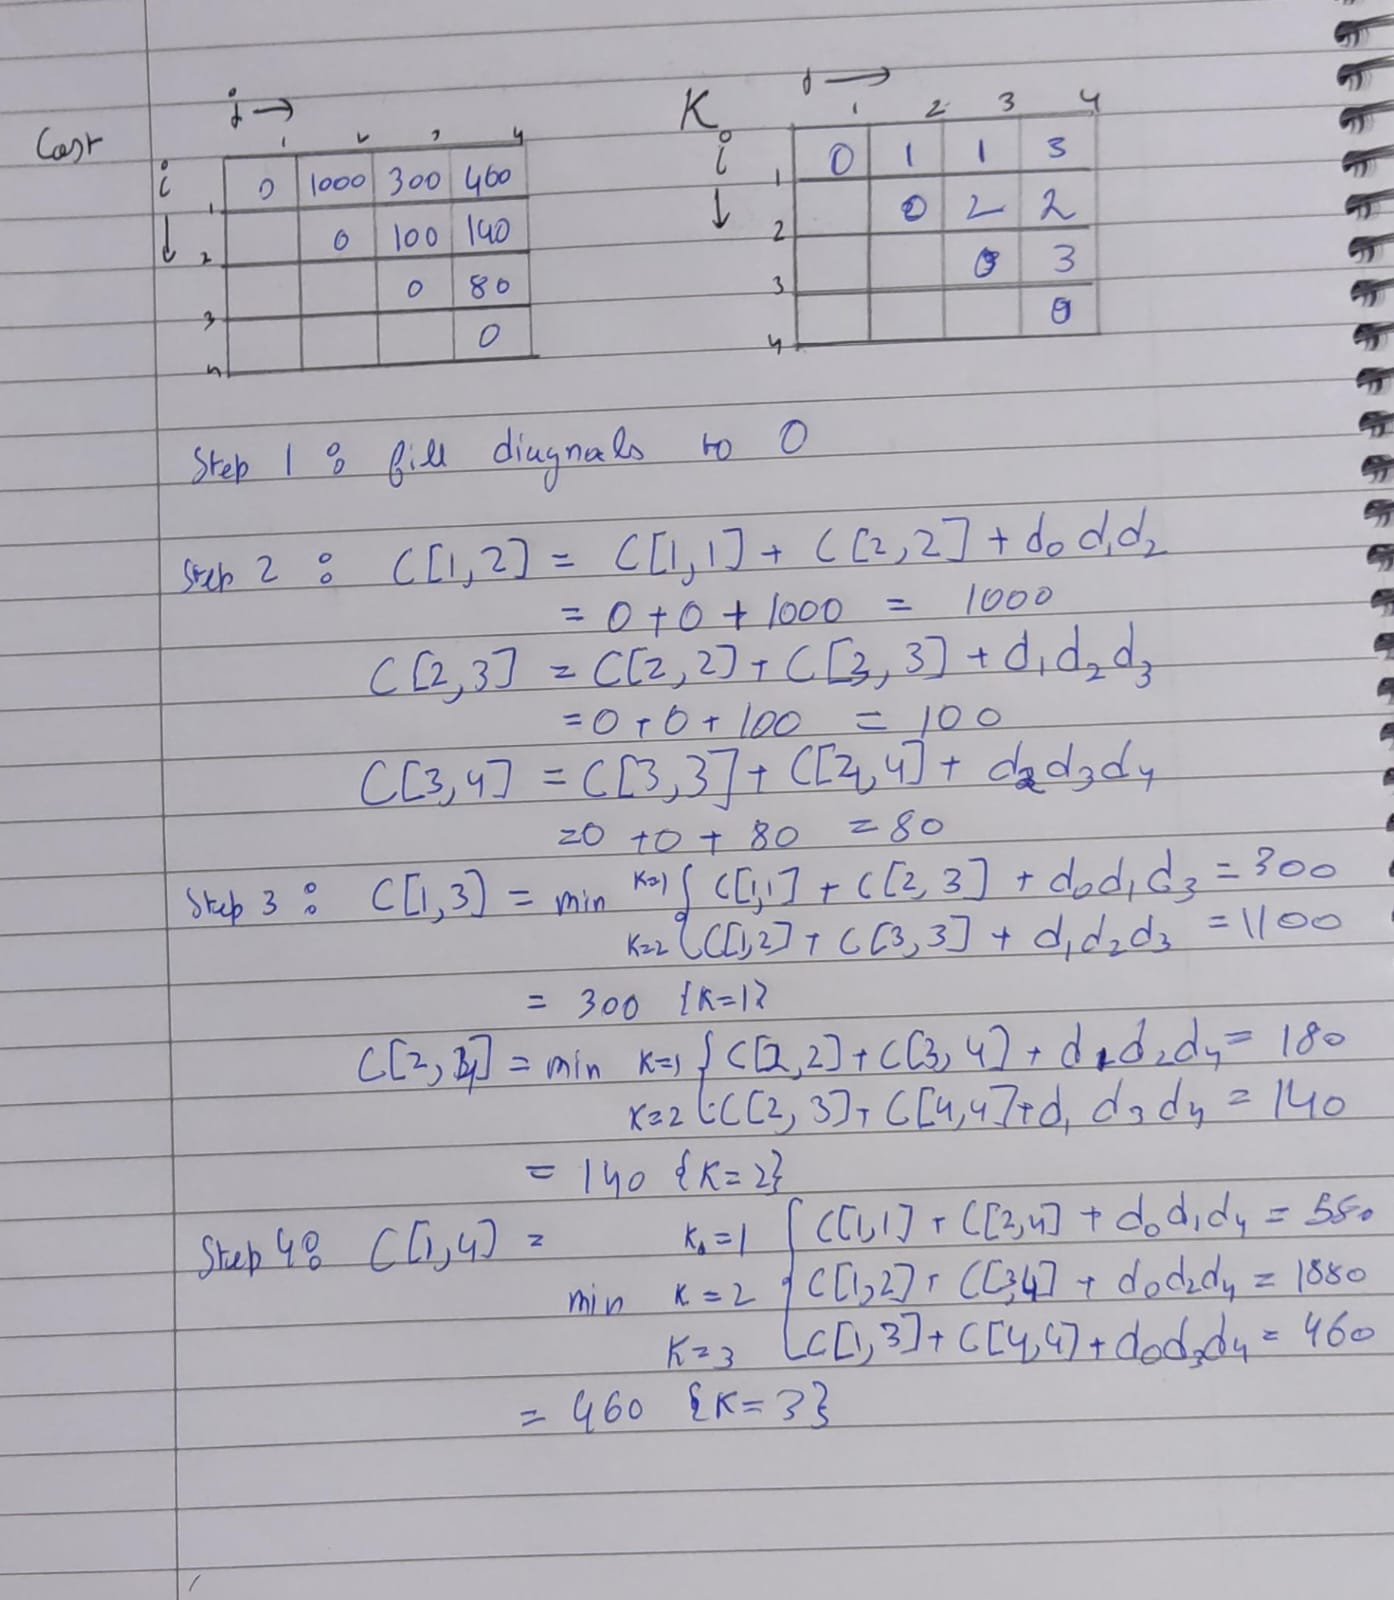 Cost
j →
1 2 3 4
i ↓
1 0 1000 300 460
2 0 100 140
3 0 80
4 0
K
j →
1 2 3 4
i ↓
1 0 1 1 3
2 0 2 2
3 0 3
4 0
Step 1 : fill diagnals to 0
Step 2 : C[1,2] = C[1,1] + C[2,2] + d₀ d₁d₂
= 0 + 0 + 1000 = 1000
C[2,3] = C[2,2] + C[3,3] + d₁d₂d₃
= 0 + 0 + 100 = 100
C[3,4] = C[3,3] + C[4,4] + d₂d₃d₄
= 0 + 0 + 80 = 80
Step 3 : C[1,3] = min K=1 { C[1,1] + C[2,3] + d₀d₁d₃ = 300
K=2 { C[1,2] + C[3,3] + d₁d₂d₃ = 1100
= 300 {K=1}
C[2,4] = min K=1 { C[2,2] + C[3,4] + d₁d₂d₄ = 180
K=2 { C[2,3] + C[4,4] + d₁ d₃d₄ = 140
= 140 {K=2}
Step 4 : C[1,4] = K=1 { C[1,1] + C[2,4] + d₀d₁d₄ =
min K=2 { C[1,2] + C[3,4] + d₀d₂d₄ = 1880
K=3 { C[1,3] + C[4,4] + d₀d₃d₄ = 460
= 460 {K=3}